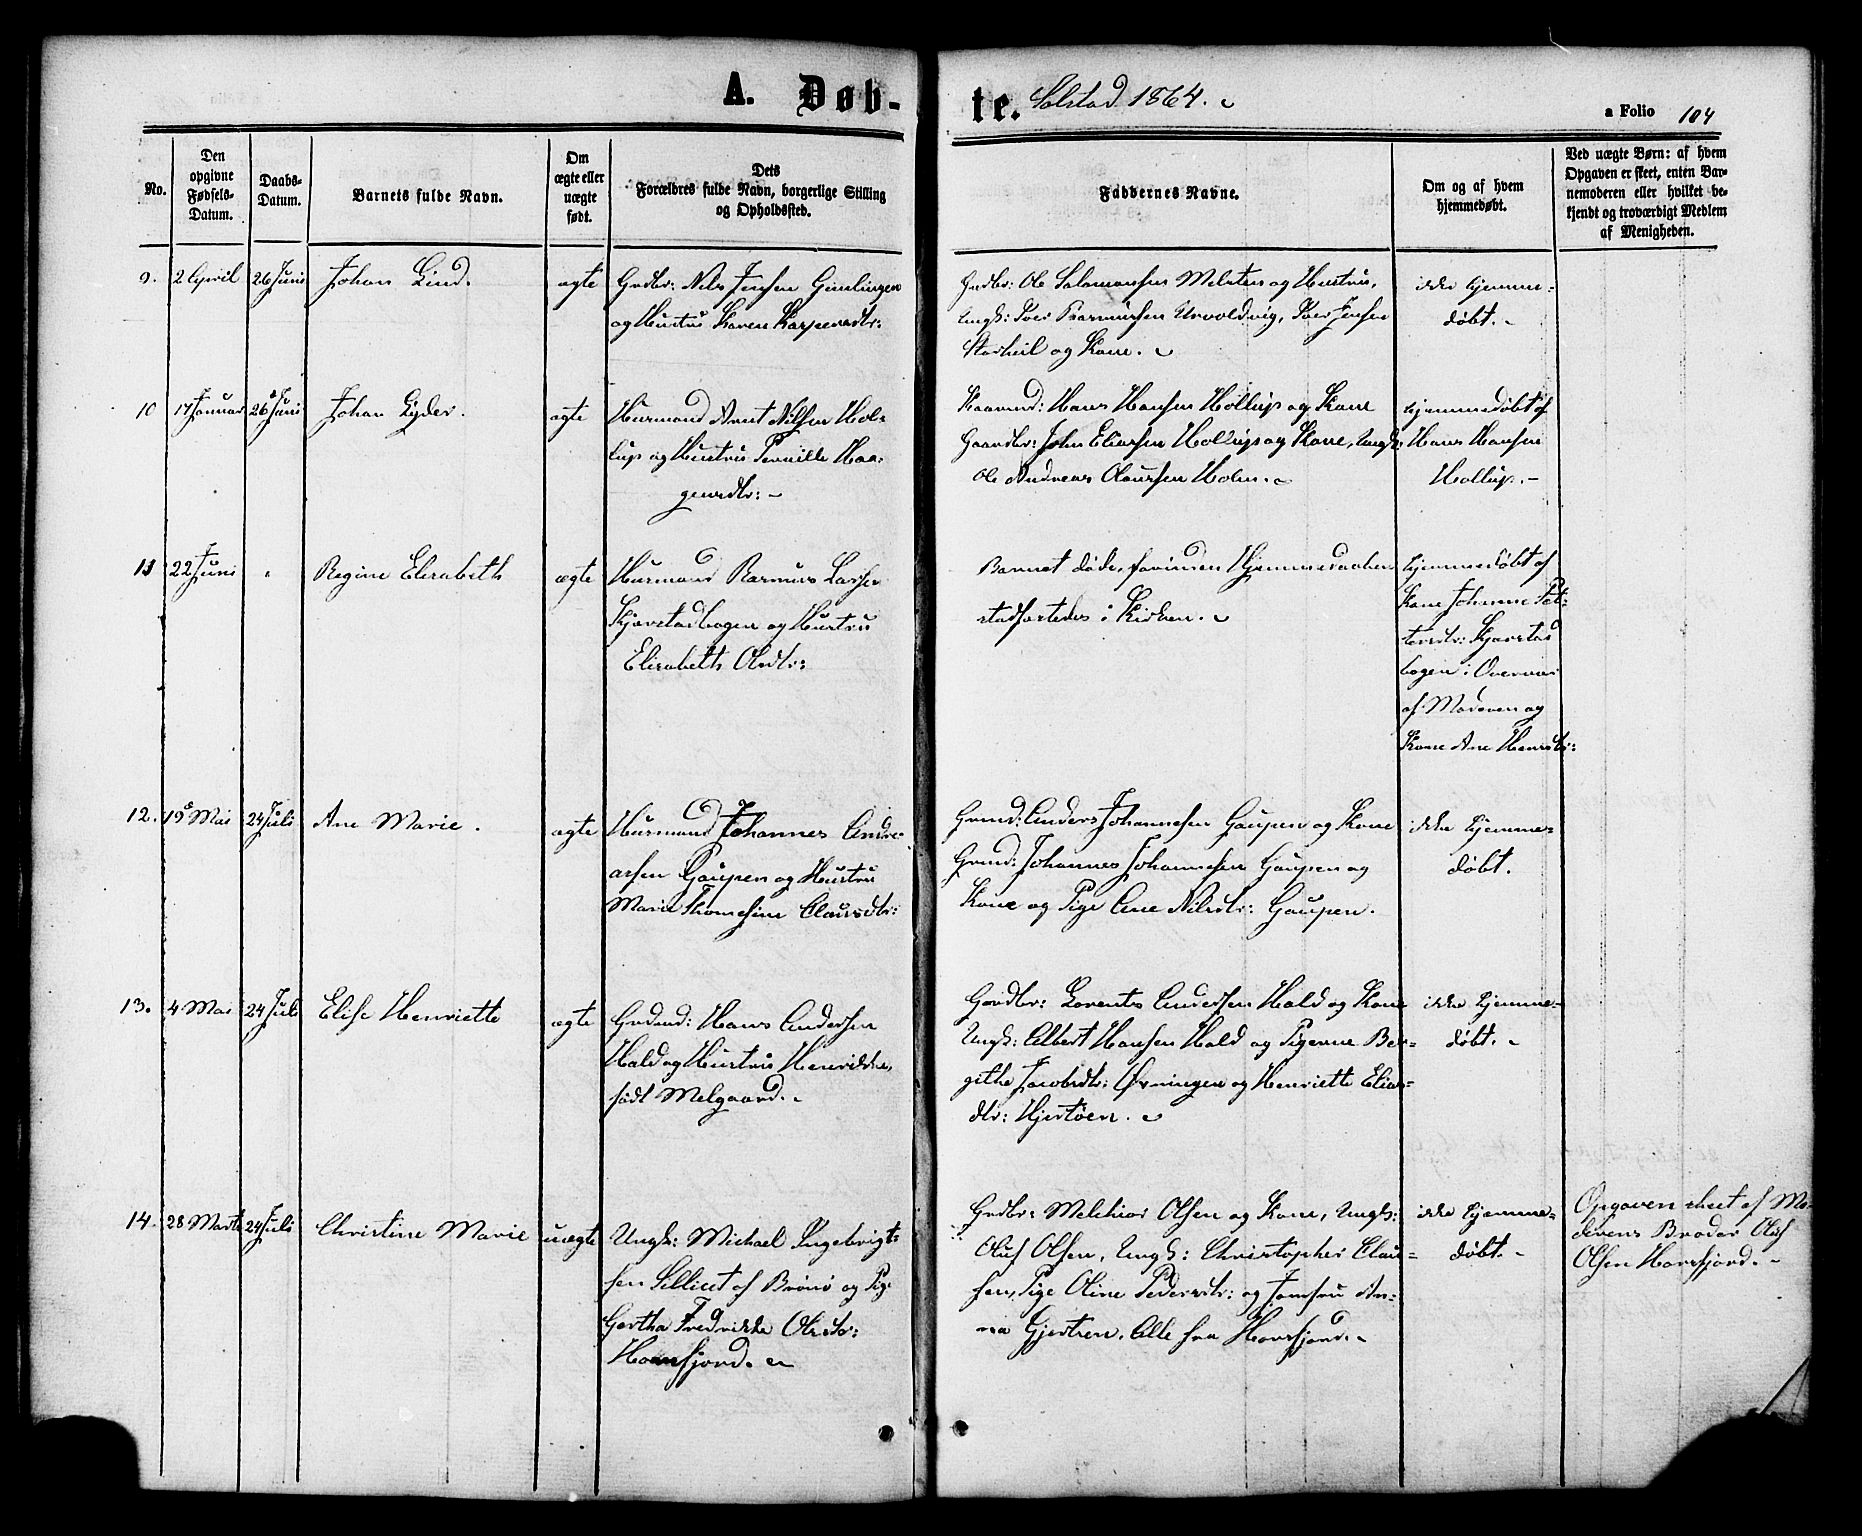 A. Døb-
te. Solstad 1864.
a Folio 104
No.
Den opgivne Fødsels-Datum.
Daabs-Datum.
Barnets fulde Navn.
Om ægte eller uægte født.
Dets Forældres fulde Navn, borgerlige Stilling og Opholdssted.
Faddernes Navne.
Om og af hvem hjemmedøbt.
Ved uægte Børn: af hvem
Opgaven er skeet, enten Bar-
nemoderen eller hvilket be-
kjendt og troværdigt Medlem
af Menigheden.
9. 2 April 26 Juni Johan Lind. ægte
Grdbr: Nils Jensen
og Hustru Karen Kaspersdtr:
Grdbr: Ole Salamonsen Melsten og Hustru,
Ungk: Peer Rasmussen Urvoldvig, Peer Jensen
Storheil og Kone.
ikke hjemme-
døbt.
10 17 Januar 26 Juni Johan Lyder. ægte
Husmand Arnt Nilsen Hol-
lup og Hustru Pernille Haa-
gensdtr:
Kaarmd: Hans Hansen Hollup og Kone
Gaardbr: John Eliassen Hollup og Kone, Ungk:
Ole Andreas Olaussen Holm.
hjemmedøbt af
Hans Hansen
Hollup.
11 22 Juni " Regine Elisabeth ægte
Husmand Rasmus Larsen
Kjærstadbogen og Hustru
Elisabeth Olsdtr:
Barnet døde, forinden Hjemmedaaben
stadfæstedes i Kirken.
hjemmedøbt af
Kone Johanne Pet-
tersdtr: Kjærstad
bogen i Overvær
af Moderen og
Kone Ane Hansdtr:
12. 19 Mai 24 Juli Ane Marie. ægte
Husmand Johannes Andre-
assen Gaupen og Hustru
Maria Thomesine Clausdtr:
Grmd: Anders Johannesen Gaupen og Kone
Grmd: Johannes Johannesen Gaupen og
Kone og Pige Ane Nilsdtr: Gaupen.
ikke hjemme-
døbt.
13. 4 Mai 24 Juli Elise Henriette ægte
Grdmd: Hans Andersen
Hald og Hustru Henrikke,
født Melgaard.
Gaardbr: Lorents Andersen Hald og Kone
Ungk: Albert Hansen Hald og Pigerne Ber-
githe Jacobsdtr: Øvningen og Henriette Elias-
dtr: Hjertøen.
ikke hjemme-
døbt.
14. 28 Marts 24 Juli Christine Marie uægte
Ungk: Michael Ingebrigt-
sen Silliest af Brønø og Pige
Gertha Fredrikke Olsdtr:
Horsfjord.
Grdbr: Melchior Olsen og Kone, Ungk:
Oluf Olsen, Ungk: Christopher Clau-
sen, Pige Oline Pedersdtr: og Jomfru An-
na Gjertsen, Alle fra Horsfjord.
ikke hjemme-
døbt.
Opgaven skeet af Mo-
derens Broder Oluf
Olsen Horsfjord.